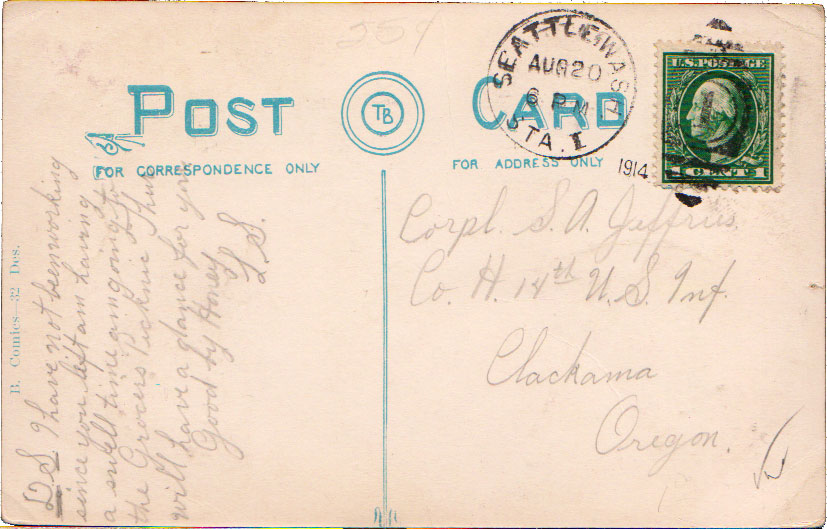 559
POST CARD
TB
FOR CORRESPONDENCE ONLY
FOR ADDRESS ONLY
SEATTLE, WASH
AUG 20
6 PM
STA. I.
1914
U.S. POSTAGE
1 CENT 1
Corpl. S. A. Jeffries.
Co. H. 14th U.S. Inf.
Clackama
Oregon.
B. Comics—32 Des.
I have not been working
since you left am having
a swell time am going to
the Grocers Picknic Thur
will have a dance for you
Good by Honey
L S.